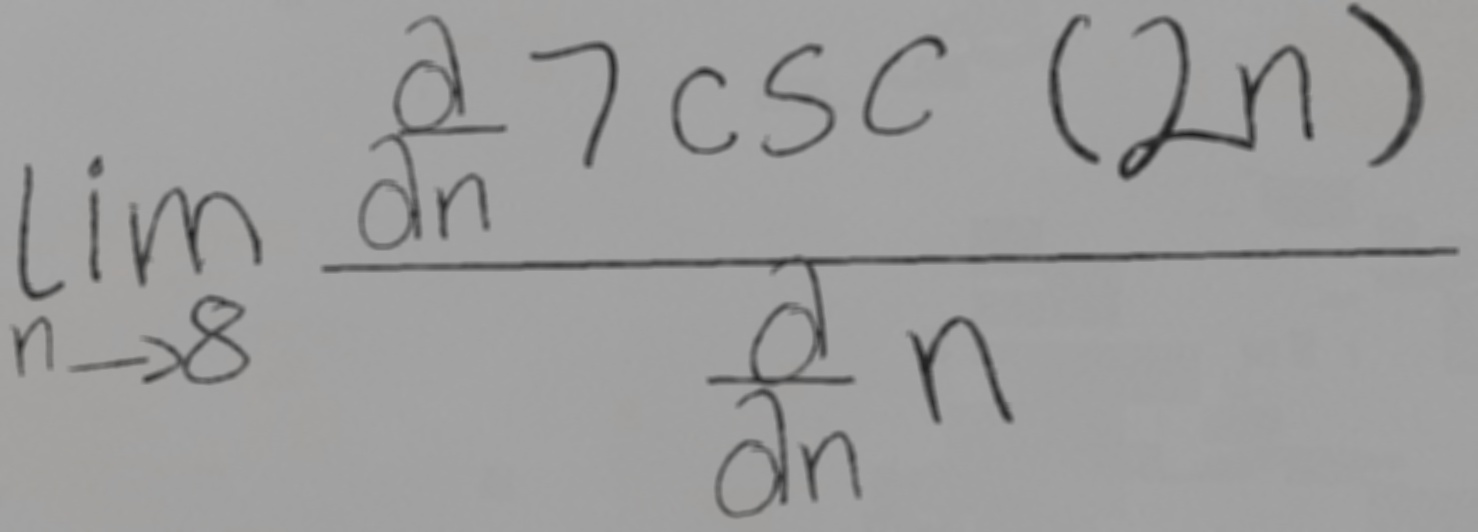 \lim_{n \to 8} \frac{\frac{d}{dn} 7 \csc (2n)}{\frac{d}{dn} n}